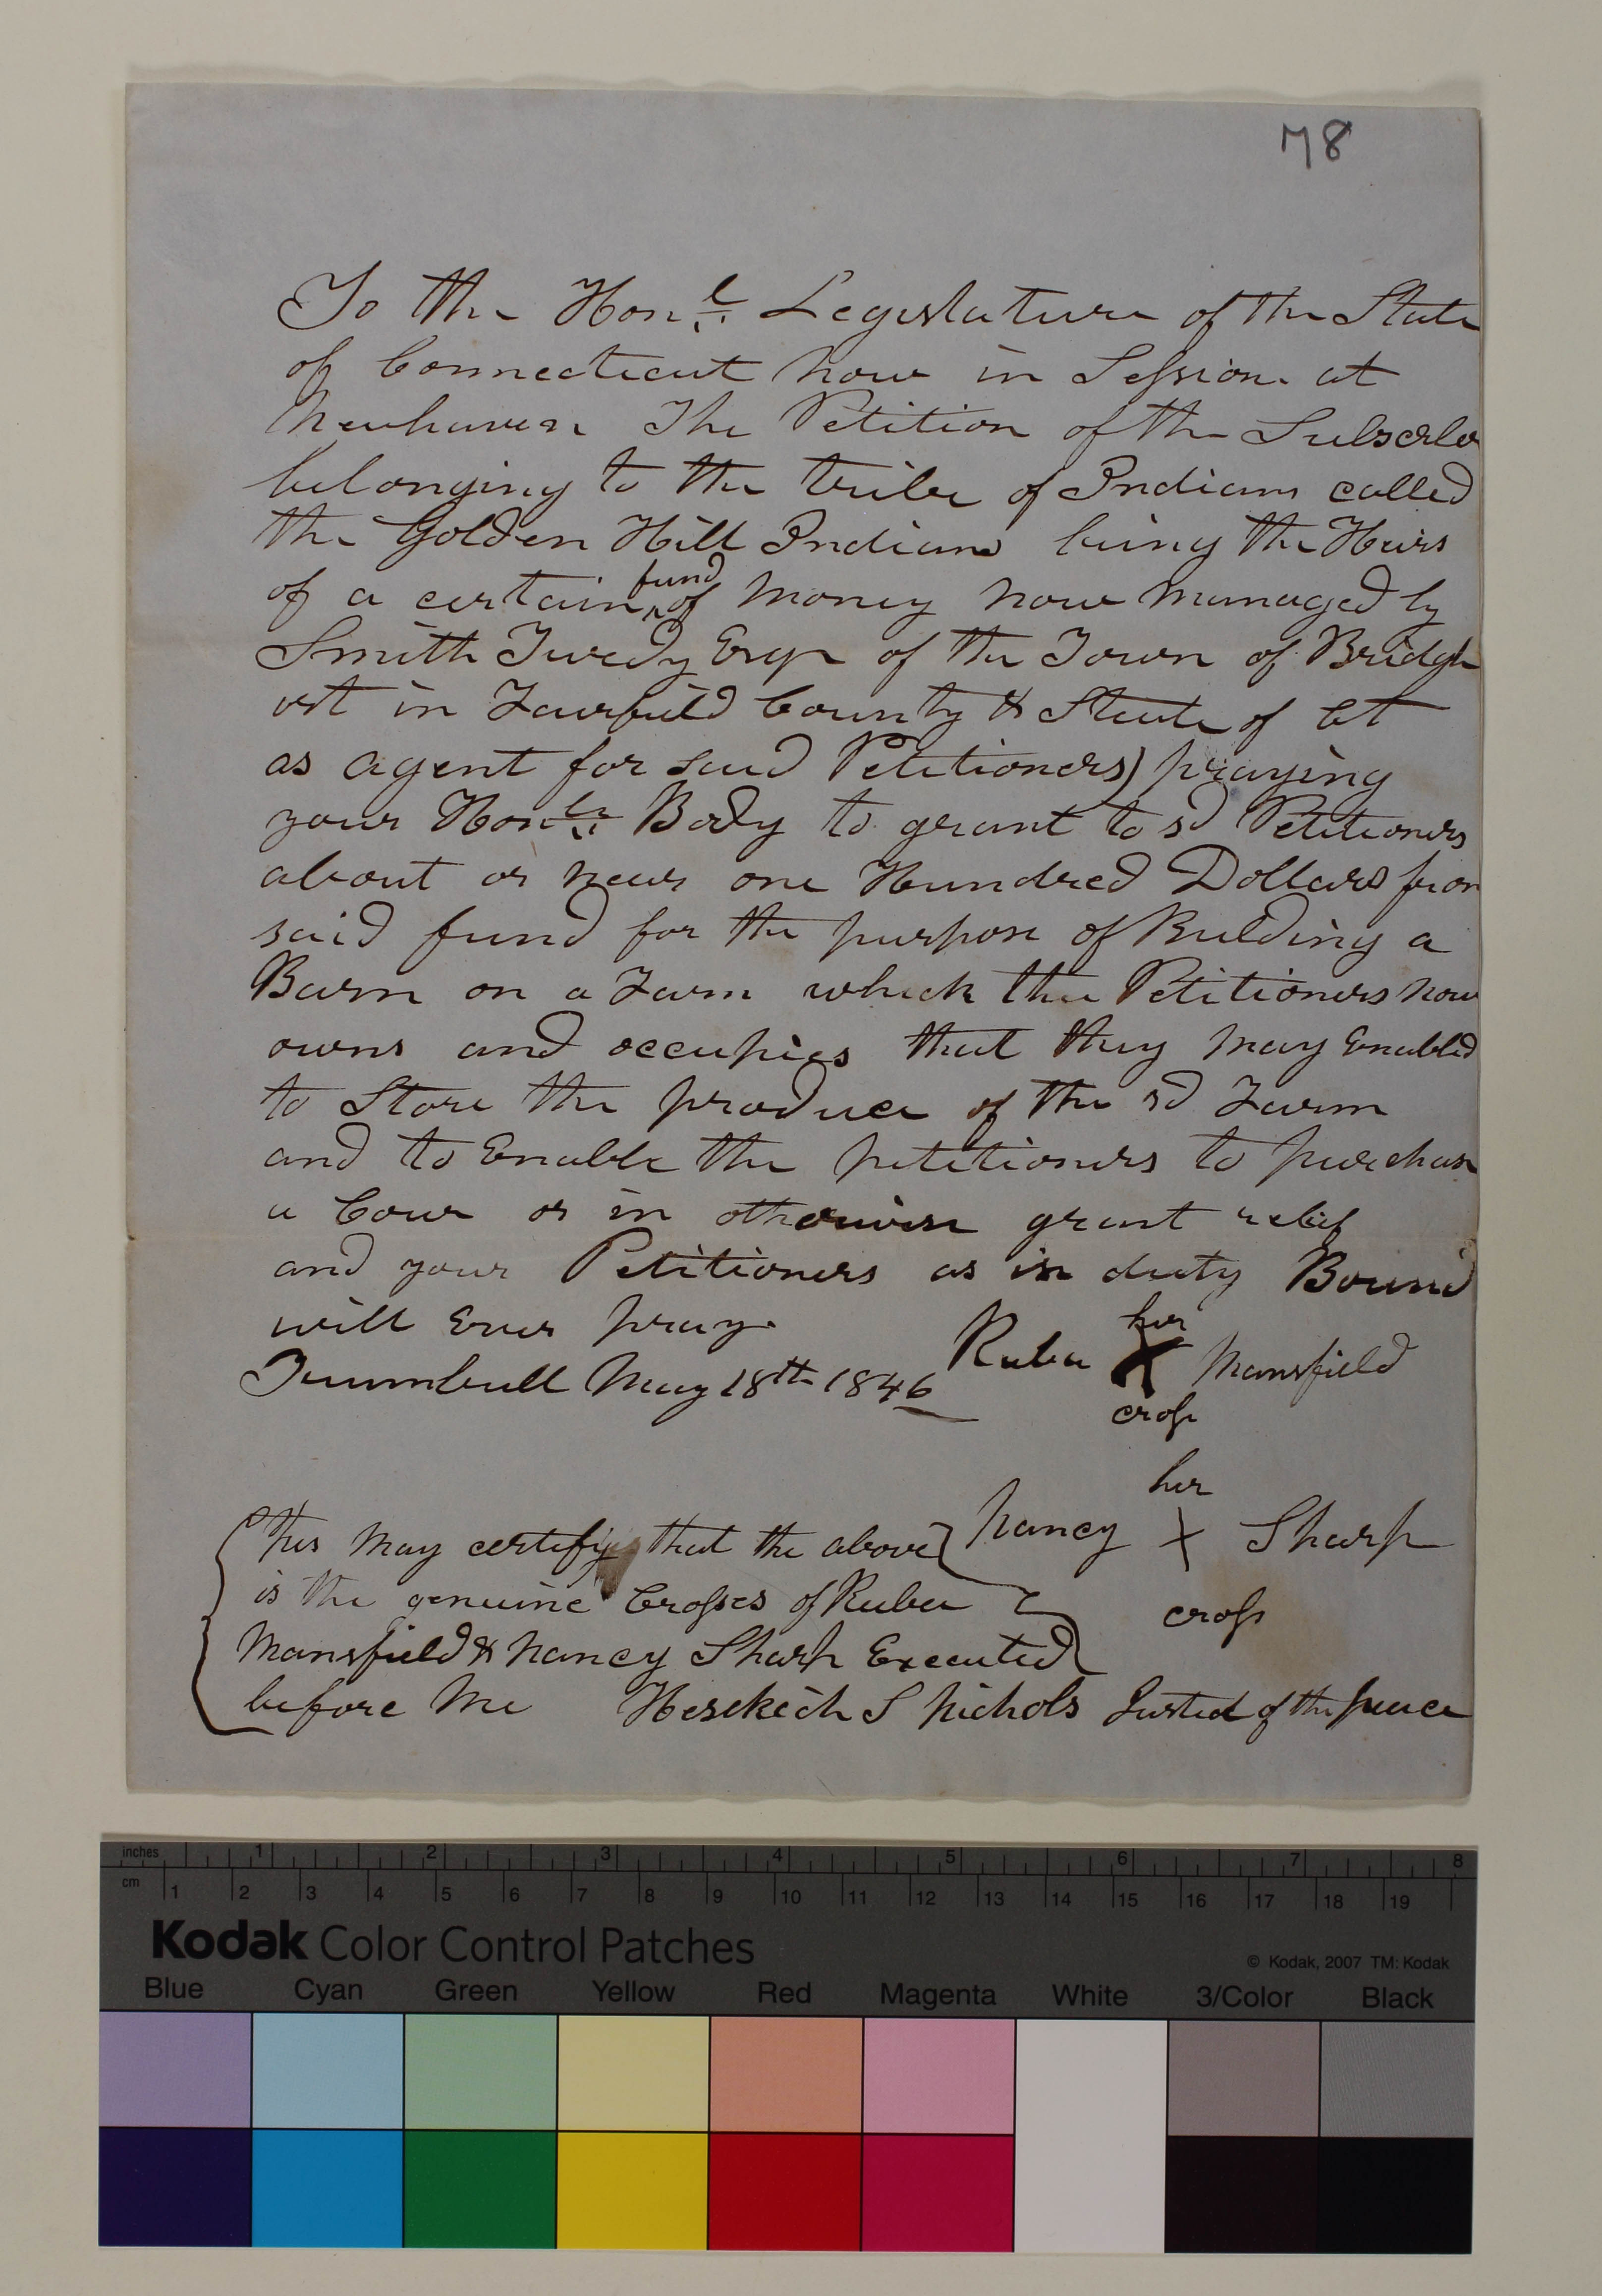 78
To the Hon.l Legislature of the State
of Connecticut now in Session at
Newhaven The Petition of the Subscrbe
belonging to the tribe of Indians called
the Golden Hill Indians being the Heirs
of a certain fund of money now managed by
Smith Twedy Esqr of the Town of Bridgp
ort in Fairfield County & State of Ct
as agent for said Petitioners) praying
your Honle Body to grant to sd Petitioners
about or near one Hundred Dollars from
said fund for the purpose of Bulding a
Barn on a Farm which the Petitioners now
owns and occupies that they may Enabled
to Store the produce of the sd Farm
and to Enable the petitioners to purchase
a Cow or in otherwise grant relief
and your Petitioners as in duty Bound
will Ever pray.
Trumbull May 18th 1846
Ruba her X cross Mansfield
Nancy her X cross Sharp
This may certify that the above
is the genuine Crosses of Ruba
Mansfield & Nancy Sharp Executed
before me Hesekich S Nichols Justed of the peace
inches 1 2 3 4 5 6 7 8
cm 1 2 3 4 5 6 7 8 9 10 11 12 13 14 15 16 17 18 19
Kodak Color Control Patches
© Kodak, 2007 TM: Kodak
Blue Cyan Green Yellow Red Magenta White 3/Color Black